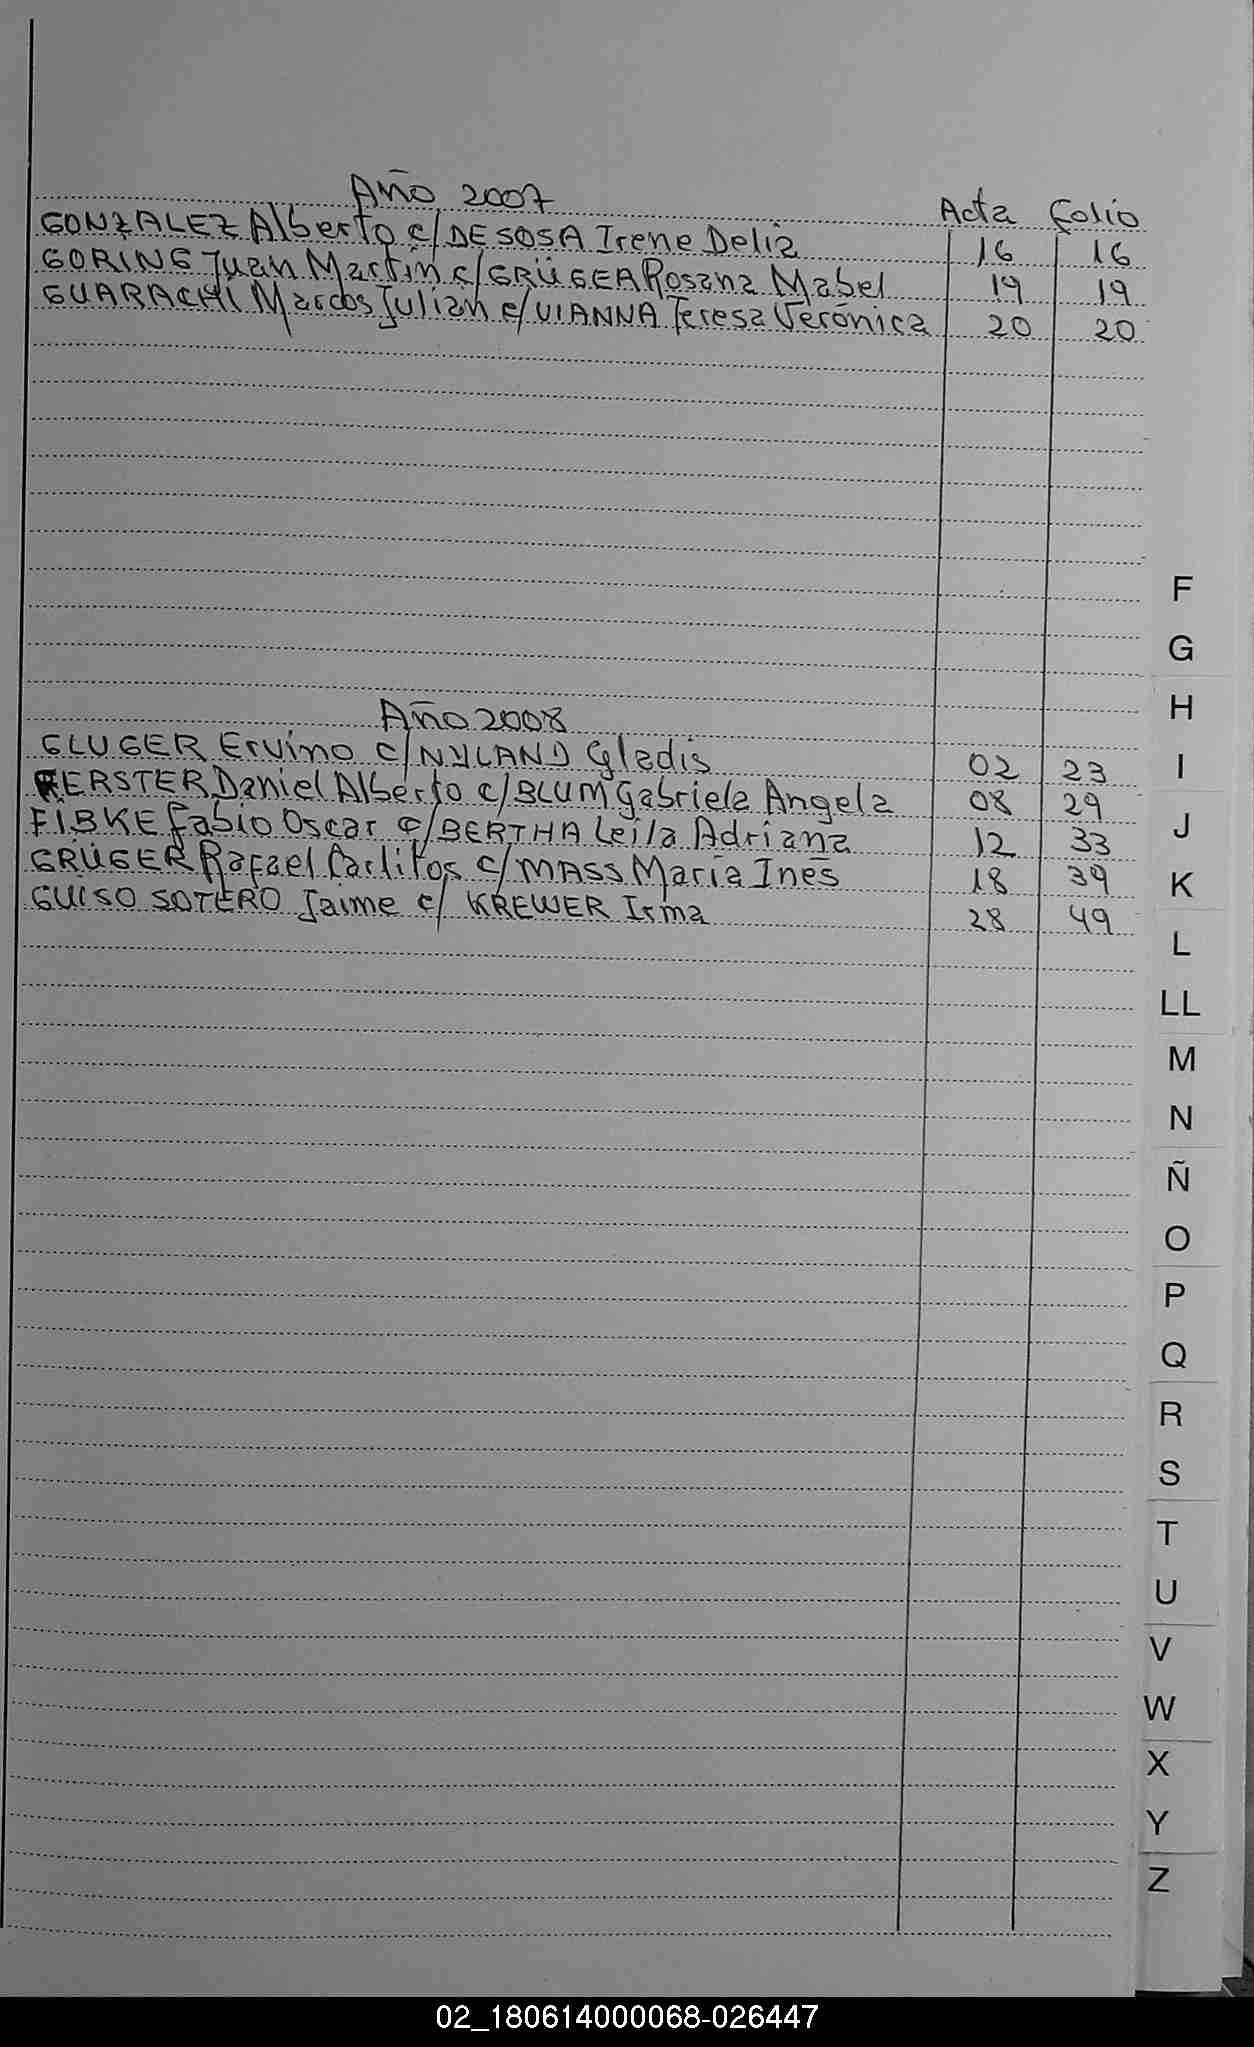 Año 2007 Acta Folio
GONZALEZ Alberto c/ DE SOSA Irene Delia 16 16
GORING Juan Martin c/ GRÜGER Rosana Mabel 19 19
GUARACHI Marcos Julian c/ VIANNA Teresa Veronica 20 20
Año 2008
GLUGER Ervino c/ NYLAND Gladis 02 23
FERSTER Daniel Alberto c/ BLUM Gabriela Angela 08 29
FIBKE Fabio Oscar c/ BERTHA Leila Adriana 12 33
GRÜGER Rafael Carlitos c/ MASS Maria Ines 18 39
GUISO SOTERO Jaime c/ KREWER Irma 28 49
F
G
H
I
J
K
L
LL
M
N
Ñ
O
P
Q
R
S
T
U
V
W
X
Y
Z
02_180614000068-026447